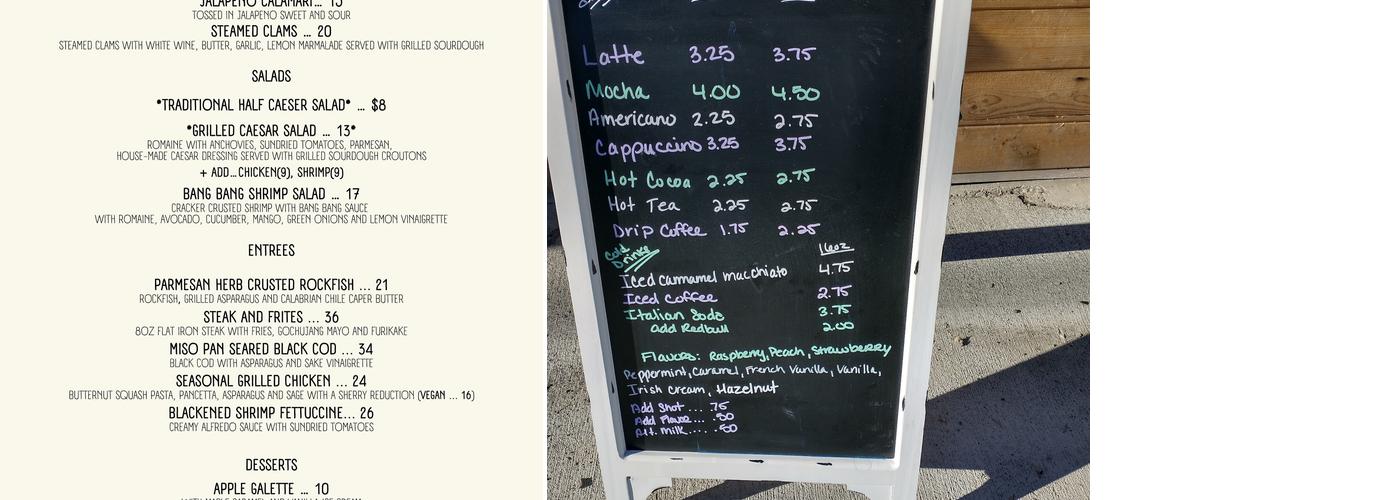 JALAPENO CALAMARI... 15
TOSSED IN JALAPENO SWEET AND SOUR
STEAMED CLAMS ... 20
STEAMED CLAMS WITH WHITE WINE, BUTTER, GARLIC, LEMON MARMALADE SERVED WITH GRILLED SOURDOUGH
SALADS
*TRADITIONAL HALF CAESER SALAD* ... $8
*GRILLED CAESAR SALAD ... 13*
ROMAINE WITH ANCHOVIES, SUNDRIED TOMATOES, PARMESAN,
HOUSE-MADE CAESAR DRESSING SERVED WITH GRILLED SOURDOUGH CROUTONS
+ ADD...CHICKEN(9), SHRIMP(9)
BANG BANG SHRIMP SALAD ... 17
CRACKER CRUSTED SHRIMP WITH BANG BANG SAUCE
WITH ROMAINE, AVOCADO, CUCUMBER, MANGO, GREEN ONIONS AND LEMON VINAIGRETTE
ENTREES
PARMESAN HERB CRUSTED ROCKFISH ... 21
ROCKFISH, GRILLED ASPARAGUS AND CALABRIAN CHILE CAPER BUTTER
STEAK AND FRITES ... 36
8OZ FLAT IRON STEAK WITH FRIES, GOCHUJANG MAYO AND FURIKAKE
MISO PAN SEARED BLACK COD ... 34
BLACK COD WITH ASPARAGUS AND SAKE VINAIGRETTE
SEASONAL GRILLED CHICKEN ... 24
BUTTERNUT SQUASH PASTA, PANCETTA, ASPARAGUS AND SAGE WITH A SHERRY REDUCTION (VEGAN ... 16)
BLACKENED SHRIMP FETTUCCINE... 26
CREAMY ALFREDO SAUCE WITH SUNDRIED TOMATOES
DESSERTS
APPLE GALETTE ... 10
WITH MAPLE CARAMEL AND VANILLA ICE CREAM
Latte 3.25 3.75
Mocha 4.00 4.50
Americano 2.25 2.75
Cappuccino 3.25 3.75
Hot Cocoa 2.25 2.75
Hot Tea 2.25 2.75
Drip Coffee 1.75 2.25
Cold Drinks 16oz
Iced carmamel macchiato 4.75
Iced Coffee 2.75
Italian Soda 3.75
add Redbull 2.00
Flavors: Raspberry, Peach, Strawberry
Peppermint, Caramel, French Vanilla, Vanilla,
Irish Cream, Hazelnut
Add Shot ... .75
Add Flavor ... .50
Alt. Milk .... .50